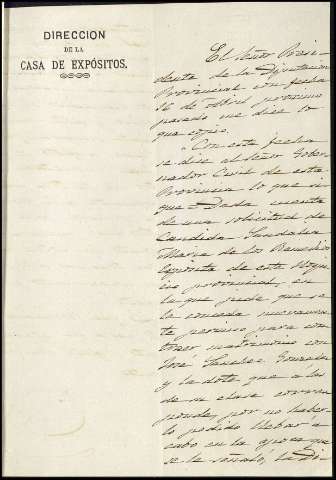 DIRECCION
DE LA
CASA DE EXPÓSITOS.
El Señor Presi-
dente de la Diputación
Provincial con fecha
16 de Abril próximo
pasado me dice lo
que copio.
"Con esta fecha
se dice al Señor Gober-
nador Civil de esta
Provincia lo que si-
gue = Dada cuenta
de una solicitud de
Candida
Maria de los Remedios
Expósita de este Hospi-
cio provincial, en
la que pide que se
le conceda nuevamen-
te permiso para con-
traer matrimonio con
José Sanchez Gonzalez
y la dote que a las
de su clase corres-
ponde, por no haber-
lo podido llebar á
cabo en la época que
se le señaló, la Di-